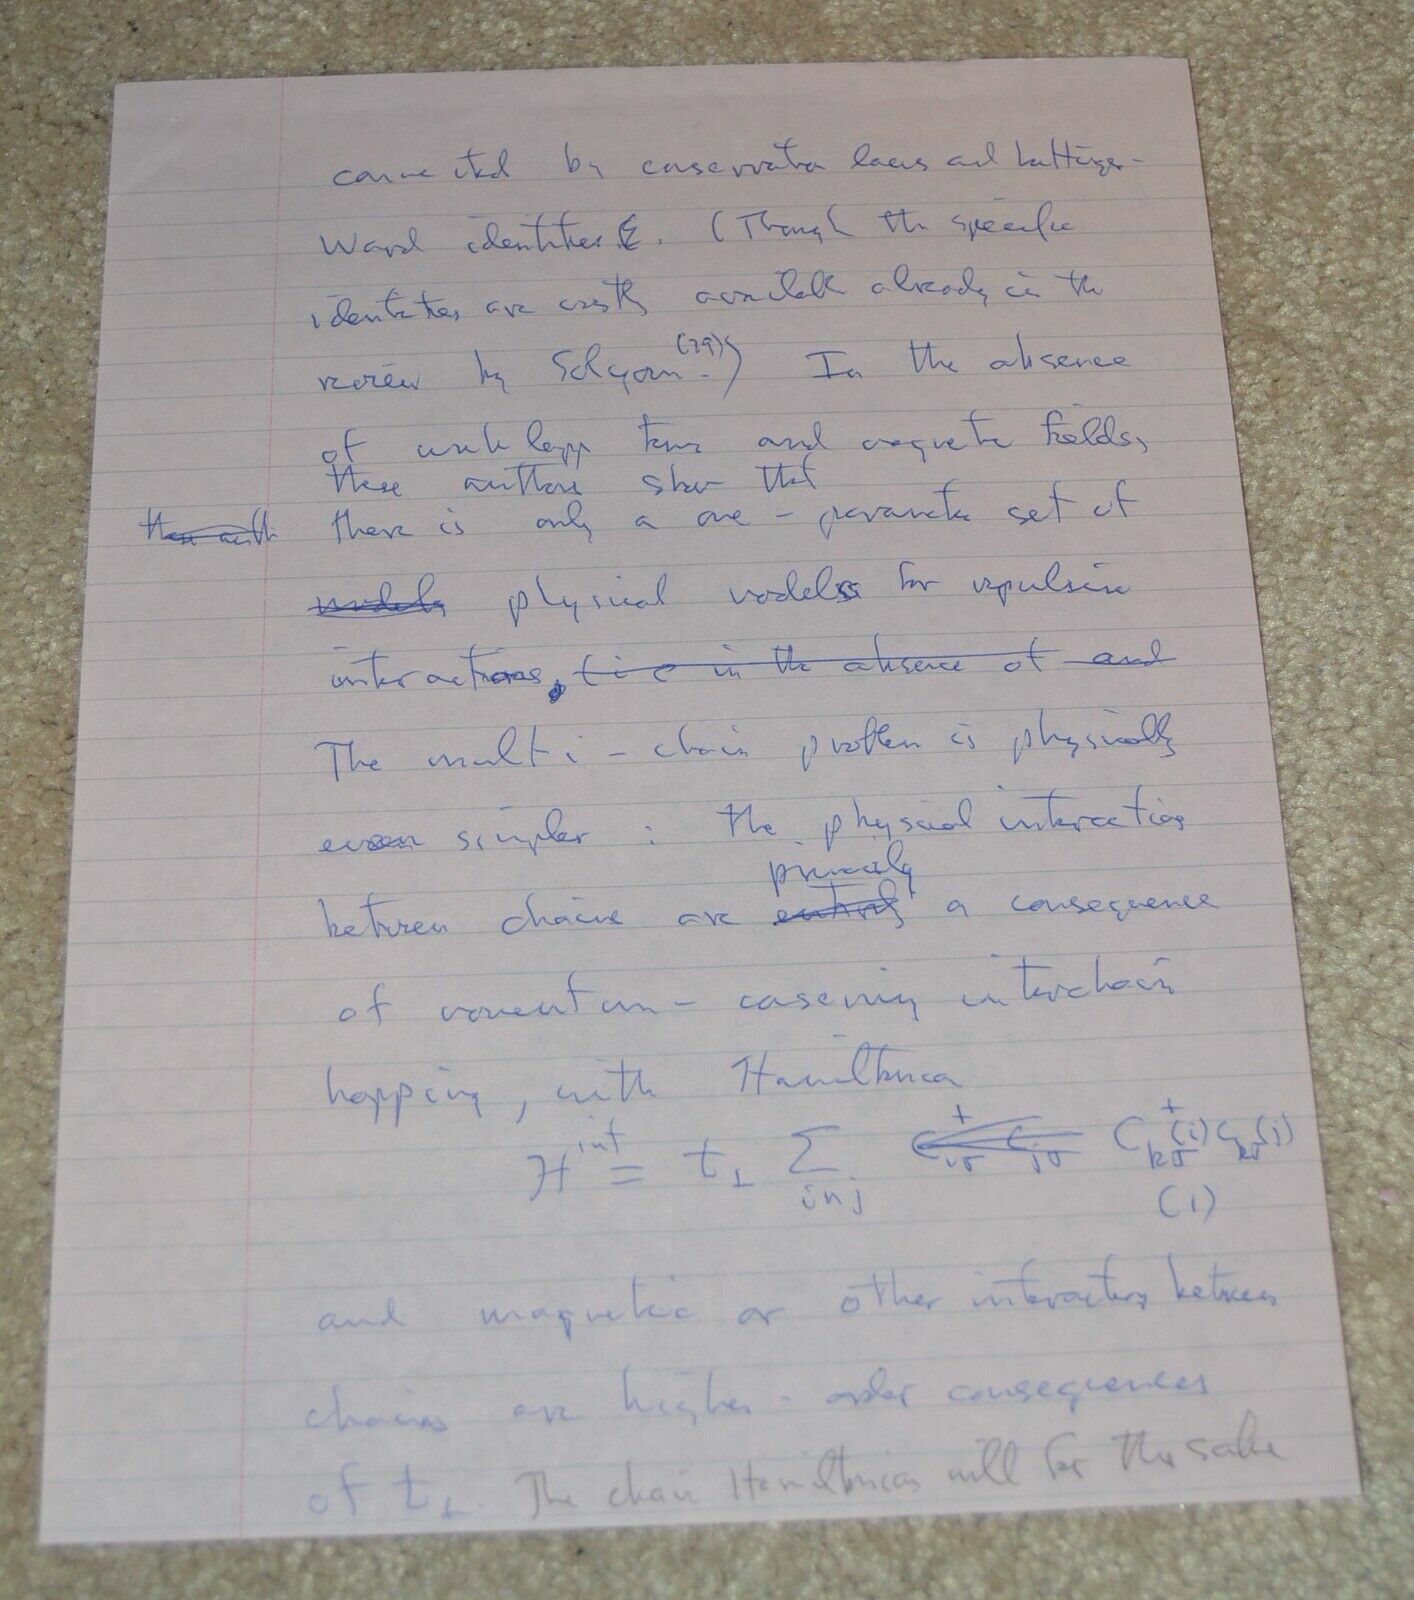 connected by conservation laws and Luttinger-
Ward identities. (Though the specific
identities are mostly available already in the
review by Solyom.(29)) In the absence
of umklapp terms and magnetic fields,
these authors show that
there is only a one-parameter set of
models physical models for repulsive
interactions, (i e in the absence of and
The multi-chain problem is physically
even simpler: the physical interactions
primarily
between chains are entirely a consequence
of momentum-conserving interchain
hopping, with Hamiltonian
H^int = t⊥ Σ_{inj} C⁺_{iσ} C_{jσ} C⁺_{kσ}(i) C_{kσ}(j)
(1)
and magnetic or other interactions between
chains are higher-order consequences
of t⊥. The chain Hamiltonians will for the sake